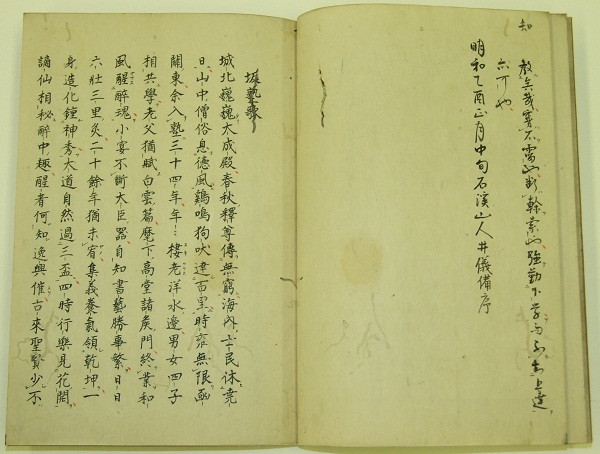 知
教矣哉實不啻 下学而不知上達
亦可也
明和乙酉正月中旬石溪山人井儀備序
城北巍巍大成殿春秋釋奠傳無窮海內士民休堯
日山中僧俗息德風鷄鳴狗吠達百里時雍無限函
關東余入塾三十四年年〻樓老洋水邊男女四子
相共學老父猶賦白雲篇麾下高堂諸矦門終業和
風醒醉魂小宴不斷大臣器自知書藝勝事繁日日
六壯三里灸二十餘年猶未宥集義養氣領乾坤一
身造化鍾神秀大道自然過三盃四時行樂見花開
謫仙相秘醉中趣醒者何知逸興催古來聖賢少不